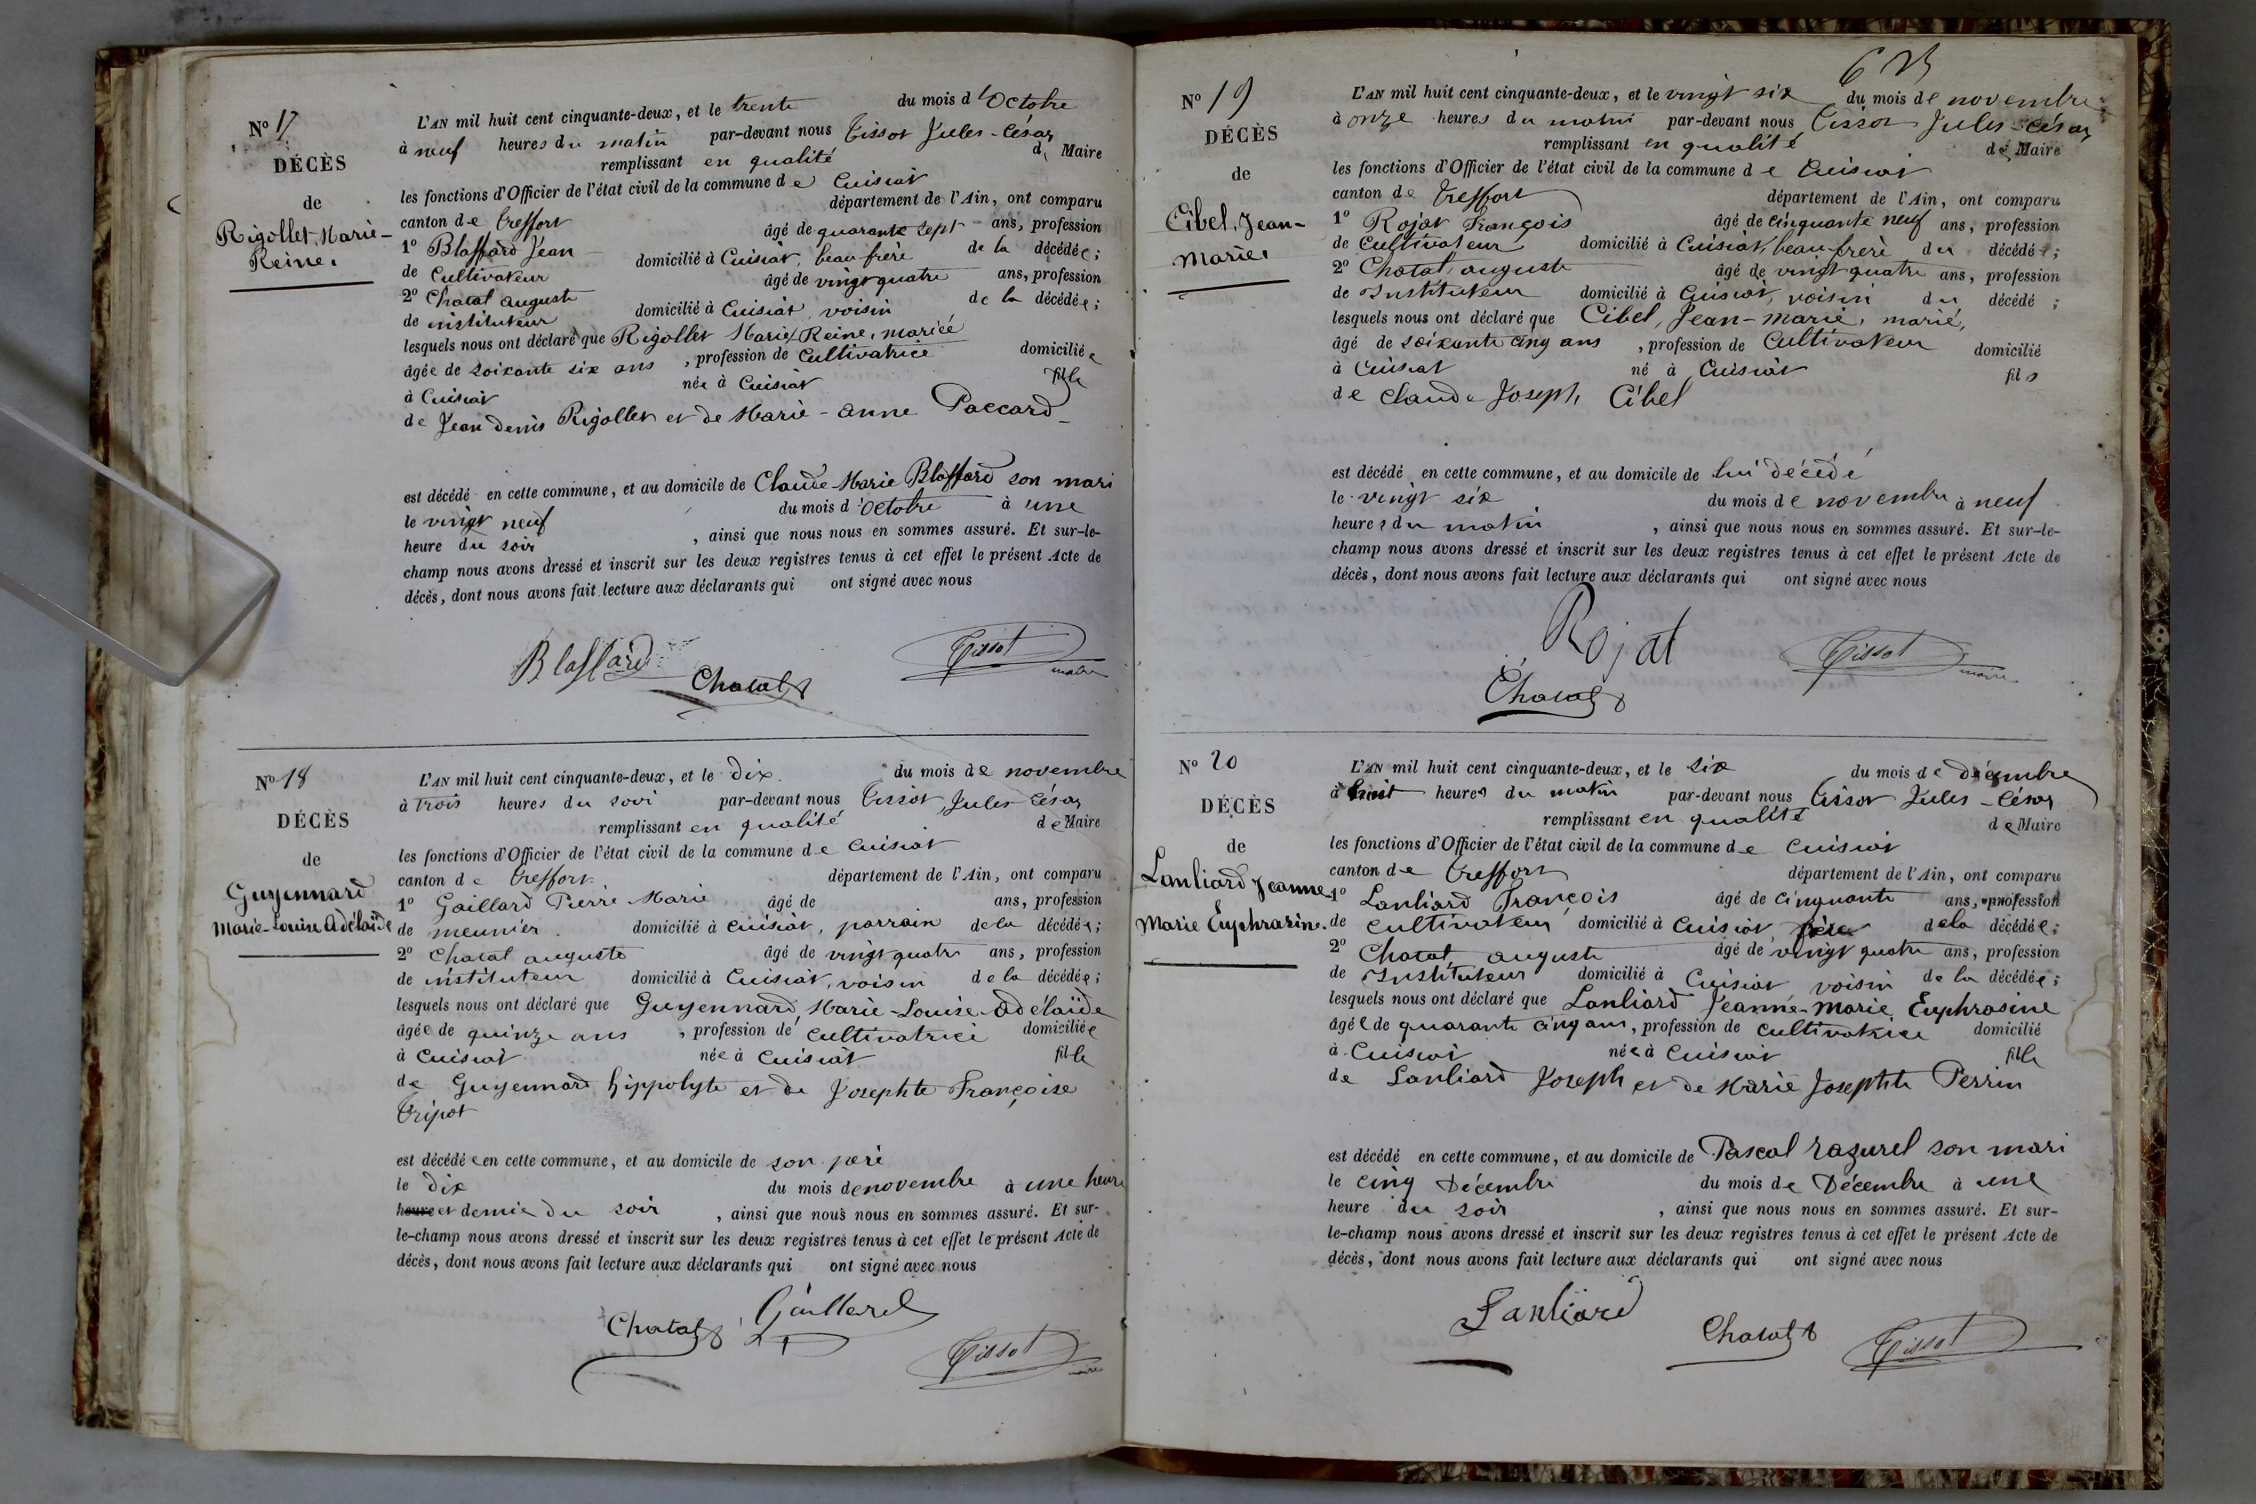 N° 17
DÉCÈS
de
Rigollet, Marie-
Reine.
L'AN mil huit cent cinquante-deux, et le trente du mois d'Octobre
à neuf heures du matin par-devant nous Tissot Jules-César
remplissant en qualité de Maire
les fonctions d'Officier de l'état civil de la commune de Cuisiat
canton de Treffort département de l'Ain, ont comparu
1° Blaffard Jean âgé de quarante sept ans, profession
de Cultivateur domicilié à Cuisiat, beau frère de la décédée;
2° Chatal auguste âgé de vingt quatre ans, profession
de instituteur domicilié à Cuisiat, voisin de la décédée;
lesquels nous ont déclaré que Rigollet Marie Reine, mariée
âgée de soixante six ans, profession de Cultivatrice domiciliée
à Cuisiat née à Cuisiat fille
de Jean denis Rigollet et de Marie-anne Paccard
est décédé en cette commune, et au domicile de Claude-Marie Blaffard son mari
le vingt neuf du mois d'Octobre à une
heure du soir, ainsi que nous nous en sommes assuré. Et sur-le-
champ nous avons dressé et inscrit sur les deux registres tenus à cet effet le présent Acte de
décès, dont nous avons fait lecture aux déclarants qui ont signé avec nous
Blaffard Chatal Tissot maire
N° 18
DÉCÈS
de
Guyennard
Marie-Louise Adélaïde
L'AN mil huit cent cinquante-deux, et le dix du mois de novembre
à trois heures du soir par-devant nous Tissot Jules César
remplissant en qualité de Maire
les fonctions d'Officier de l'état civil de la commune de Cuisiat
canton de Treffort département de l'Ain, ont comparu
1° Gaillard Pierre Marie âgé de ans, profession
de meunier domicilié à Cuisiat, parrain de la décédée;
2° Chatal auguste âgé de vingt quatre ans, profession
de instituteur domicilié à Cuisiat, voisin de la décédée;
lesquels nous ont déclaré que Guyennard, Marie-Louise-Adélaïde
âgée de quinze ans, profession de cultivatrice domiciliée
à Cuisiat née à Cuisiat fille
de Guyennard hippolyte et de Josephte Françoise
Tripot
est décédée en cette commune, et au domicile de son père
le dix du mois de novembre à une heure
heure et demie du soir, ainsi que nous nous en sommes assuré. Et sur-
le-champ nous avons dressé et inscrit sur les deux registres tenus à cet effet le présent Acte de
décès, dont nous avons fait lecture aux déclarants qui ont signé avec nous
Chatal Gaillard Tissot maire
N° 19
DÉCÈS
de
Cibel, Jean-
marie
L'AN mil huit cent cinquante-deux, et le vingt six du mois de novembre
à onze heures du matin par-devant nous Tissot Jules-César
remplissant en qualité de Maire
les fonctions d'Officier de l'état civil de la commune de Cuisiat
canton de Treffort département de l'Ain, ont comparu
1° Rojat François âgé de cinquante neuf ans, profession
de Cultivateur domicilié à Cuisiat, beau frère du décédé;
2° Chatal auguste âgé de vingt quatre ans, profession
de Instituteur domicilié à Cuisiat, voisin du décédé;
lesquels nous ont déclaré que Cibel, Jean-marie, marié,
âgé de soixante cinq ans, profession de Cultivateur domicilié
à Cuisiat né à Cuisiat fils
de Claude Joseph Cibel
est décédé en cette commune, et au domicile de lui décédé
le vingt six du mois de novembre à neuf
heures du matin, ainsi que nous nous en sommes assuré. Et sur-le-
champ nous avons dressé et inscrit sur les deux registres tenus à cet effet le présent Acte de
décès, dont nous avons fait lecture aux déclarants qui ont signé avec nous
Rojat Tissot maire
Chatal
N° 20
DÉCÈS
de
Lanliard Jeanne
Marie Euphrasine.
L'AN mil huit cent cinquante-deux, et le six du mois de décembre
à huit heures du matin par-devant nous Tissot Jules-César
remplissant en qualité de Maire
les fonctions d'Officier de l'état civil de la commune de Cuisiat
canton de Treffort département de l'Ain, ont comparu
1° Lanliard François âgé de cinquante ans, profession
de cultivateur domicilié à Cuisiat de la décédée;
2° Chatal auguste âgé de vingt quatre ans, profession
de Instituteur domicilié à Cuisiat voisin de la décédée;
lesquels nous ont déclaré que Lanliard Jeanne-Marie Euphrasine
âgée de quarante cinq ans, profession de cultivatrice domicilié
à Cuisiat née à Cuisiat fille
de Lanliard Joseph et de Marie Josephte Perrin
est décédé en cette commune, et au domicile de Pascal razurel son mari
le cinq Décembre du mois de Décembre à une
heure du soir, ainsi que nous nous en sommes assuré. Et sur-
le-champ nous avons dressé et inscrit sur les deux registres tenus à cet effet le présent Acte de
décès, dont nous avons fait lecture aux déclarants qui ont signé avec nous
Lanliard Chatal Tissot